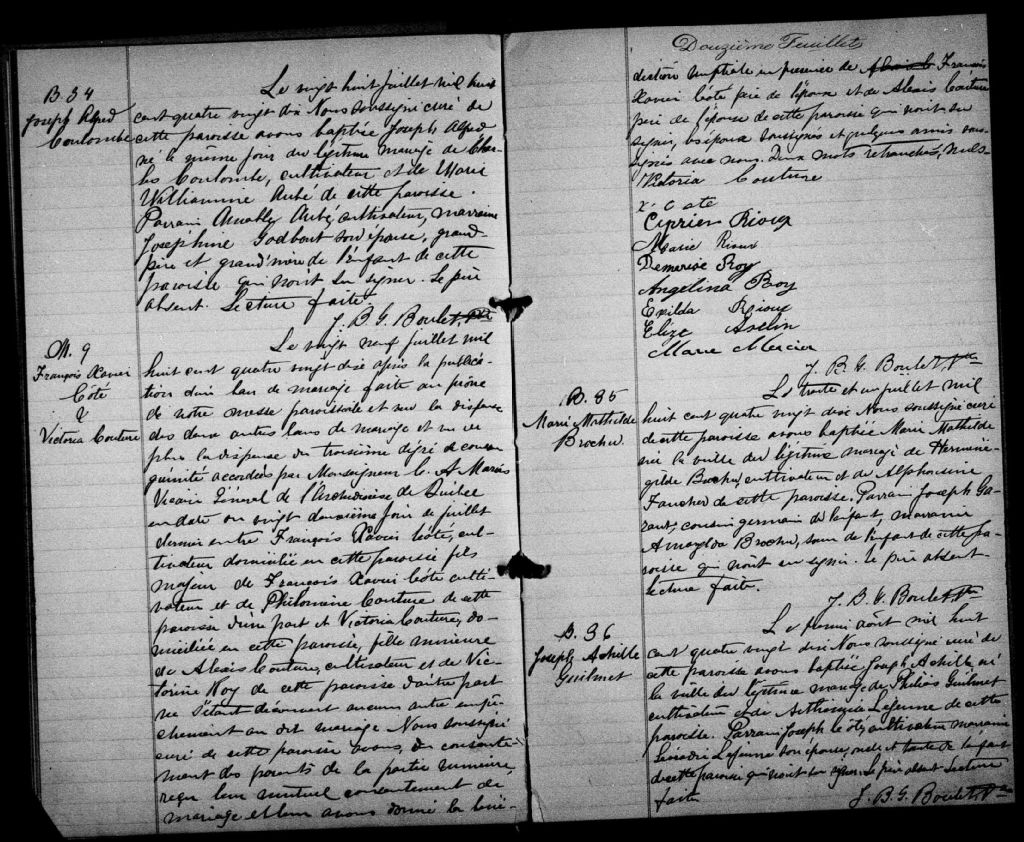 B 34
Joseph Alfred
Coulombe
Le vingt huit juillet mil huit
cent quatre vingt dix Nous soussigné curé de
cette paroisse avons baptisé Joseph Alfred
né le même jour du légitime mariage de Char-
les Coulombe, cultivateur et de Marie
Williamine Aubé de cette paroisse.
Parrain Amable Aubé cultivateur, marraine
Josephine Godbout son épouse, grand-
père et grand'mère de l'enfant de cette
paroisse qui n'ont su signer. Le père
absent. Lecture faite.
J. B. G. Boulet, Ptre
M. 9
François Xavier
Côté
&
Victoria Couture
Le vingt neuf juillet mil
huit cent quatre vingt dix après la publica-
tion d'un ban de mariage faite au prône
de notre messe paroissiale et vu la dispense
des deux autres bans de mariage et vu en
plus la dispense du troisième degré de consan
guinité accordées par Monseigneur C. A Marois
Vicaire Général de l'Archidiocèse de Québec
en date du vingt deuxième jour de juillet
dernier entre François Xavier Côté, cul-
tivateur domicilié en cette paroisse fils
majeur de François Xavier Côté culti-
vateur et de Philomène Couture de cette
paroisse d'une part et Victoria Couture, do-
miciliée en cette paroisse, fille mineure
de Alexis Couture, cultivateur et de Vic-
toire Roy de cette paroisse d'autre part
ne s'étant découvert aucun autre empê-
chement au dit mariage Nous soussigné
curé de cette paroisse avons, du consente-
ment des parents de la partie mineure,
reçu leur mutuel consentement de
mariage et leur avons donné la béné-
Douzième Feuillet
diction nuptiale en présence de François
Xavier Côté père de l'époux et de Alexis Couture
père de l'épouse de cette paroisse qui n'ont su
signer, les époux soussignés et quelques amis sous-
signés avec nous. Deux mots retranchés, nuls-
Victoria Couture
x. Coté
Ciprien Rioux
Marie Rioux
Démerise Roy
Angelina Roy
Exilda Rioux
Elize Asselin
Marie Mercier
J. B. G. Boulet, Ptre
B. 35
Marie Mathilde
Brochu
Le trente et un juillet mil
huit cent quatre vingt dix Nous soussigné curé
de cette paroisse avons baptisé Marie Mathilde
née la veille du légitime mariage de Herméné-
gilde Brochu, cultivateur et de Alphonsine
Faucher de cette paroisse. Parrain Joseph Ga-
rant, cousin germain de l'enfant, marraine
Amazelda Brochu, soeur de l'enfant de cette pa-
roisse qui n'ont su signer. Le père absent
Lecture faite.
J. B. G. Boulet Ptre
B. 36
Joseph Achille
Guilmet
Le premier août mil huit
cent quatre vingt dix Nous soussigné curé de
cette paroisse avons baptisé Joseph Achille né
la veille du légitime mariage de Philéas Guilmet
cultivateur et de Arthémise Lejeune de cette
paroisse. Parrain Joseph Côté, cultivateur marraine
Lejeune son épouse, oncle et tante de l'enfant
de cette paroisse qui n'ont su signer. Le père absent Lecture
faite
J. B. G. Boulet, Ptre